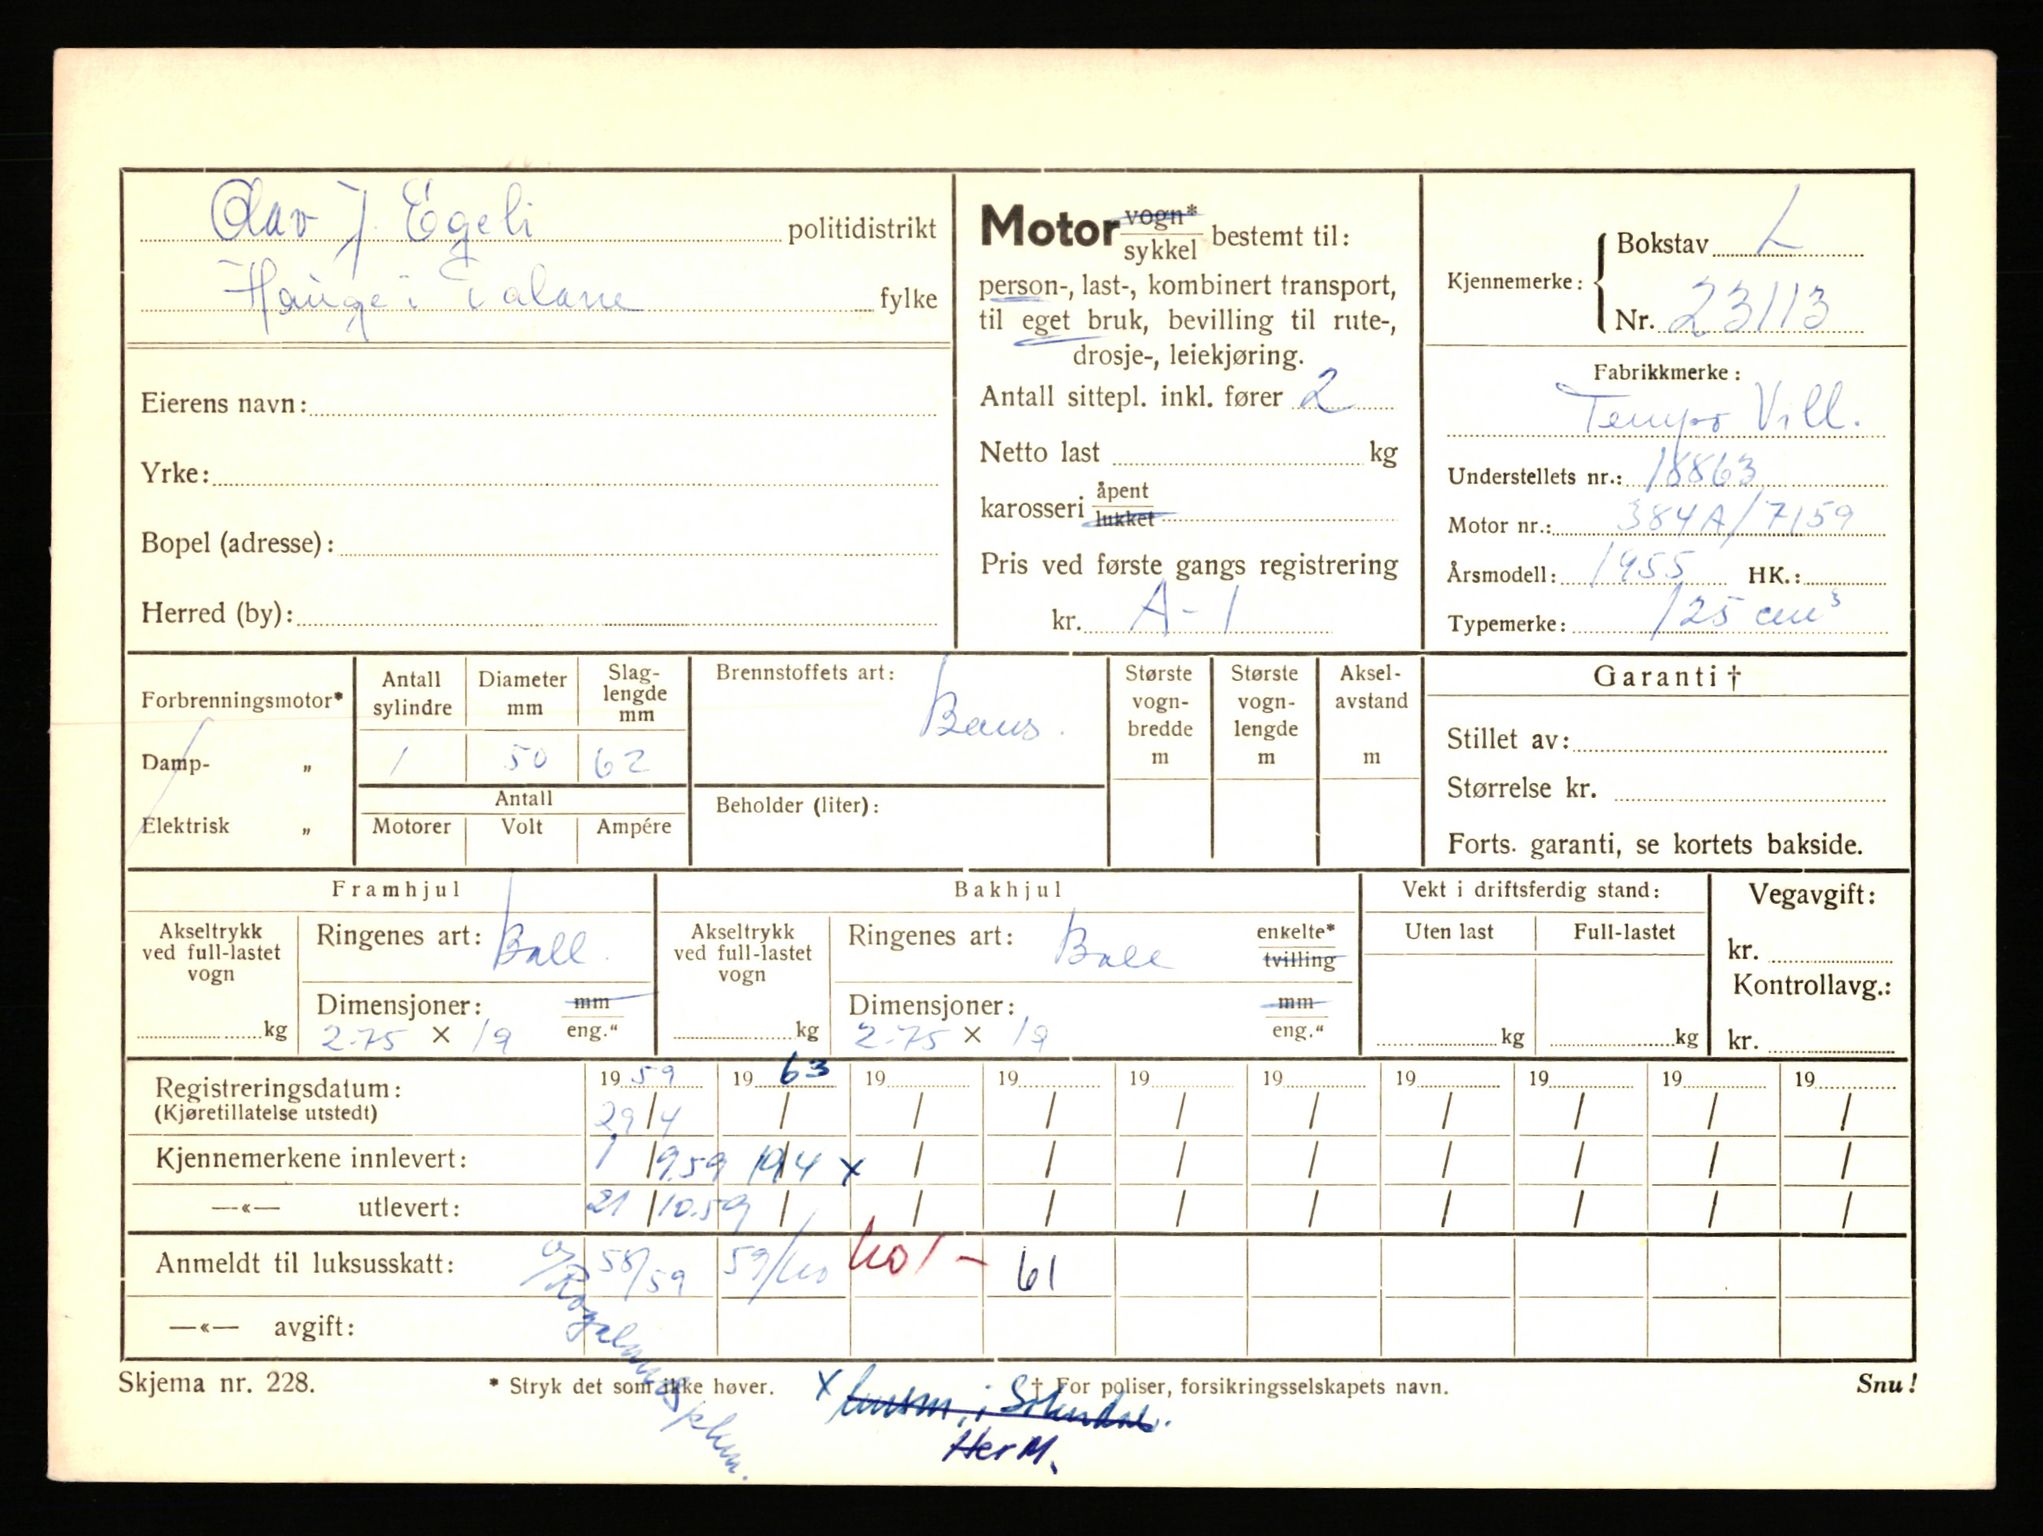 Olav J. Egeli politidistrikt
Hauge i Dalane fylke
Eierens navn:
Yrke:
Bopel (adresse):
Herred (by):
Motor vogn* / sykkel bestemt til:
person-, last-, kombinert transport,
til eget bruk, bevilling til rute-,
drosje-, leiekjøring.
Antall sittepl. inkl. fører 2
Netto last kg
karosseri åpent / lukket
Pris ved første gangs registrering
kr. A-1
Kjennemerke: Bokstav L
Nr. 23113
Fabrikkmerke:
Tempo Vill.
Understellets nr.: 18863
Motor nr.: 384A/7159
Årsmodell: 1955 HK.:
Typemerke: 125 cm³
Forbrenningsmotor*
Damp- „
Elektrisk „
Antall sylindre
1
Diameter mm
50
Slaglengde mm
62
Antall
Motorer Volt Ampére
Brennstoffets art:
Bens.
Beholder (liter):
Største vogn-bredde m
Største vogn-lengde m
Aksel-avstand m
Garanti †
Stillet av:
Størrelse kr.
Forts. garanti, se kortets bakside.
Framhjul
Akseltrykk ved full-lastet vogn
kg
Ringenes art: Ball.
Dimensjoner: mm / eng.“
2.75 × 19
Bakhjul
Akseltrykk ved full-lastet vogn
kg
Ringenes art: Ball enkelte* / tvilling
Dimensjoner: mm / eng.“
2.75 × 19
Vekt i driftsferdig stand:
Uten last Full-lastet
kg kg
Vegavgift:
kr.
Kontrollavg.:
kr.
Registreringsdatum: 19 59 19 63 19 19 19 19 19 19 19 19
(Kjøretillatelse utstedt) 29/4 / / / / / / / / /
Kjennemerkene innlevert: 1/9.59 10/4 x / / / / / / / /
—«— utlevert: 21/10.59 / / / / / / / / /
Anmeldt til luksusskatt: 58/59 59/60 60/- 61
—«— avgift:
Skjema nr. 228.
* Stryk det som ikke høver.
† For poliser, forsikringsselskapets navn.
Snu!
x i Sokndal.
Her M.